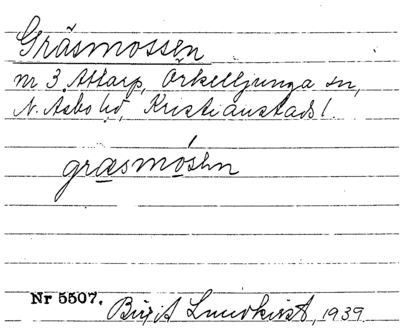 Gräsmossen
nr 3 Attarp, Örkelljunga sn,
N. Åsbo hd, Kristianstads l.
græsmósen
Nr 5507. Birgit Lundkvist, 1939